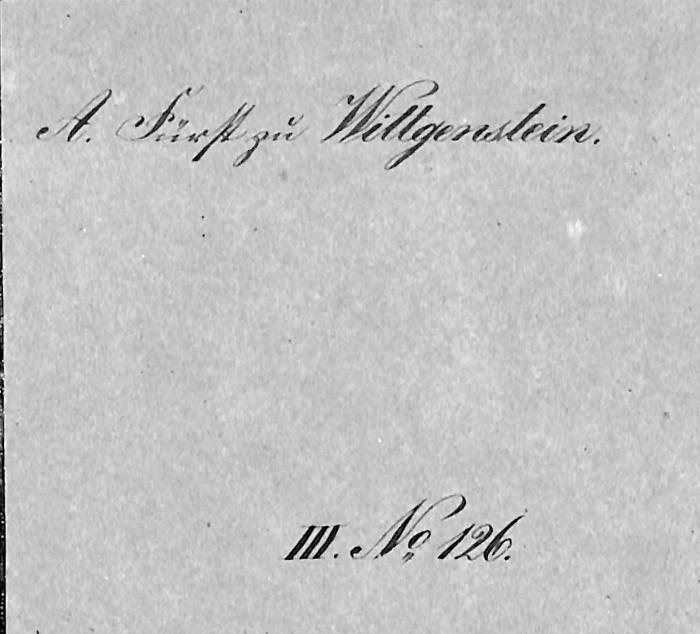 A. Fürst zu Wittgenstein.
III. No 126.